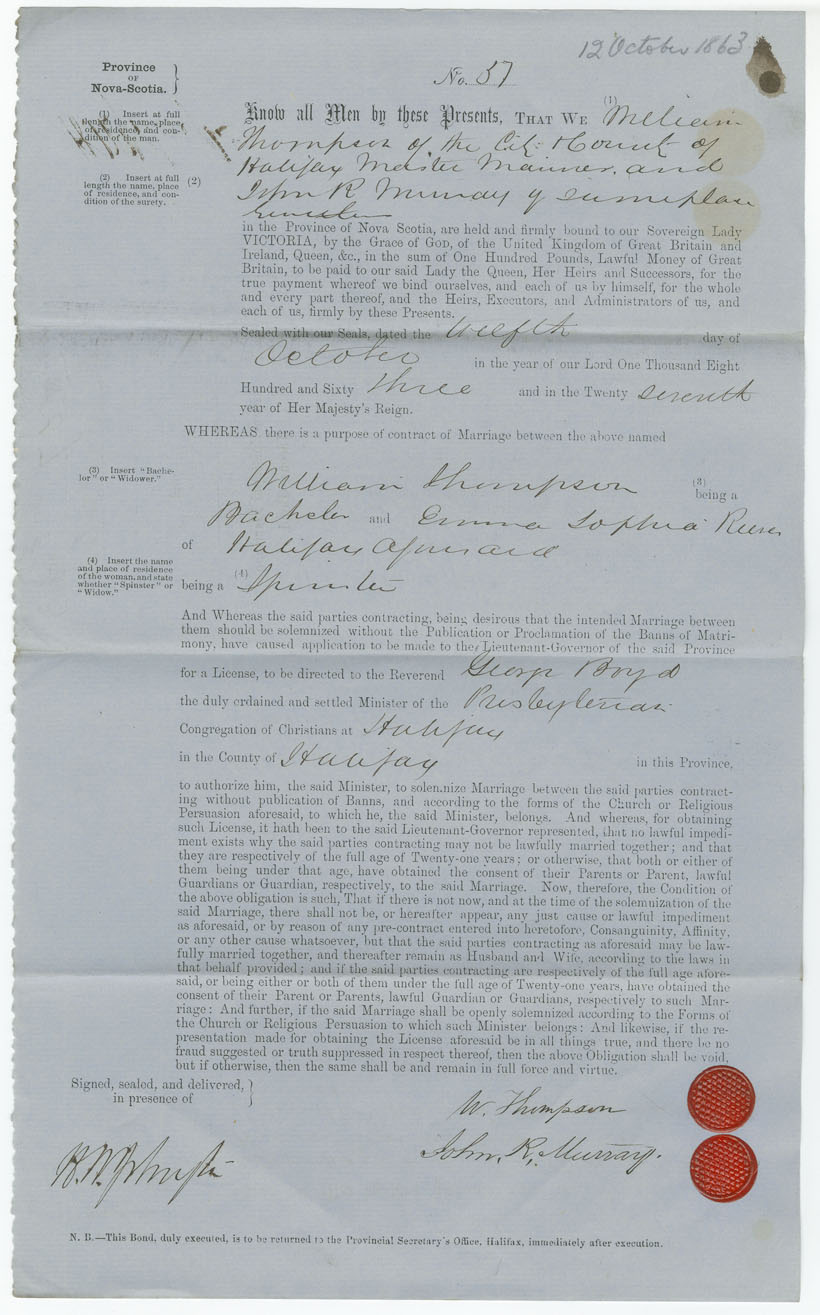 12 October 1863
Province
OF
Nova-Scotia.
No. 57
(1) Insert at full
length the name, place
of residence, and con-
dition of the man.
Know all Men by these Presents, THAT WE (1) William
Thompson of the City & County of
Halifax Master Mariner, and
(2) Insert at full
length the name, place
of residence, and con-
dition of the surety.
(2) John R Murray of same place
in the Province of Nova Scotia, are held and firmly bound to our Sovereign Lady
VICTORIA, by the Grace of GOD, of the United Kingdom of Great Britain and
Ireland, Queen, &c., in the sum of One Hundred Pounds, Lawful Money of Great
Britain, to be paid to our said Lady the Queen, Her Heirs and Successors, for the
true payment whereof we bind ourselves, and each of us by himself, for the whole
and every part thereof, and the Heirs, Executors, and Administrators of us, and
each of us, firmly by these Presents.
Sealed with our Seals, dated the twelfth day of
October in the year of our Lord One Thousand Eight
Hundred and Sixty three and in the Twenty seventh
year of Her Majesty's Reign.
WHEREAS there is a purpose of contract of Marriage between the above named
(3) Insert "Bache-
lor" or "Widower."
William Thompson (3) being a
Bachelor and Emma Sophia
of Halifax aforesaid
(4) Insert the name
and place of residence
of the woman, and state
whether "Spinster" or
"Widow."
being a (4) Spinster
And Whereas the said parties contracting, being desirous that the intended Marriage between
them should be solemnized without the Publication or Proclamation of the Banns of Matri-
mony, have caused application to be made to the Lieutenant-Governor of the said Province
for a License, to be directed to the Reverend George Boyd
the duly ordained and settled Minister of the Presbyterian
Congregation of Christians at Halifax
in the County of Halifax in this Province,
to authorize him, the said Minister, to solemnize Marriage between the said parties contract-
ing without publication of Banns, and according to the forms of the Church or Religious
Persuasion aforesaid, to which he, the said Minister, belongs. And whereas, for obtaining
such License, it hath been to the said Lieutenant-Governor represented, that no lawful impedi-
ment exists why the said parties contracting may not be lawfully married together; and that
they are respectively of the full age of Twenty-one years; or otherwise, that both or either of
them being under that age, have obtained the consent of their Parents or Parent, lawful
Guardians or Guardian, respectively, to the said Marriage. Now, therefore, the Condition of
the above obligation is such, That if there is not now, and at the time of the solemnization of the
said Marriage, there shall not be, or hereafter appear, any just cause or lawful impediment
as aforesaid, or by reason of any pre-contract entered into heretofore, Consanguinity, Affinity,
or any other cause whatsoever, but that the said parties contracting as aforesaid may be law-
fully married together, and thereafter remain as Husband and Wife, according to the laws in
that behalf provided; and if the said parties contracting are respectively of the full age afore-
said, or being either or both of them under the full age of Twenty-one years, have obtained the
consent of their Parent or Parents, lawful Guardian or Guardians, respectively to such Mar-
riage: And further, if the said Marriage shall be openly solemnized according to the Forms of
the Church or Religious Persuasion to which such Minister belongs: And likewise, if the re-
presentation made for obtaining the License aforesaid be in all things true, and there be no
fraud suggested or truth suppressed in respect thereof, then the above Obligation shall be void,
but if otherwise, then the same shall be and remain in full force and virtue.
Signed, sealed, and delivered,
in presence of
W. Thompson
John. R. Murray.
N. B.—This Bond, duly executed, is to be returned to the Provincial Secretary's Office, Halifax, immediately after execution.